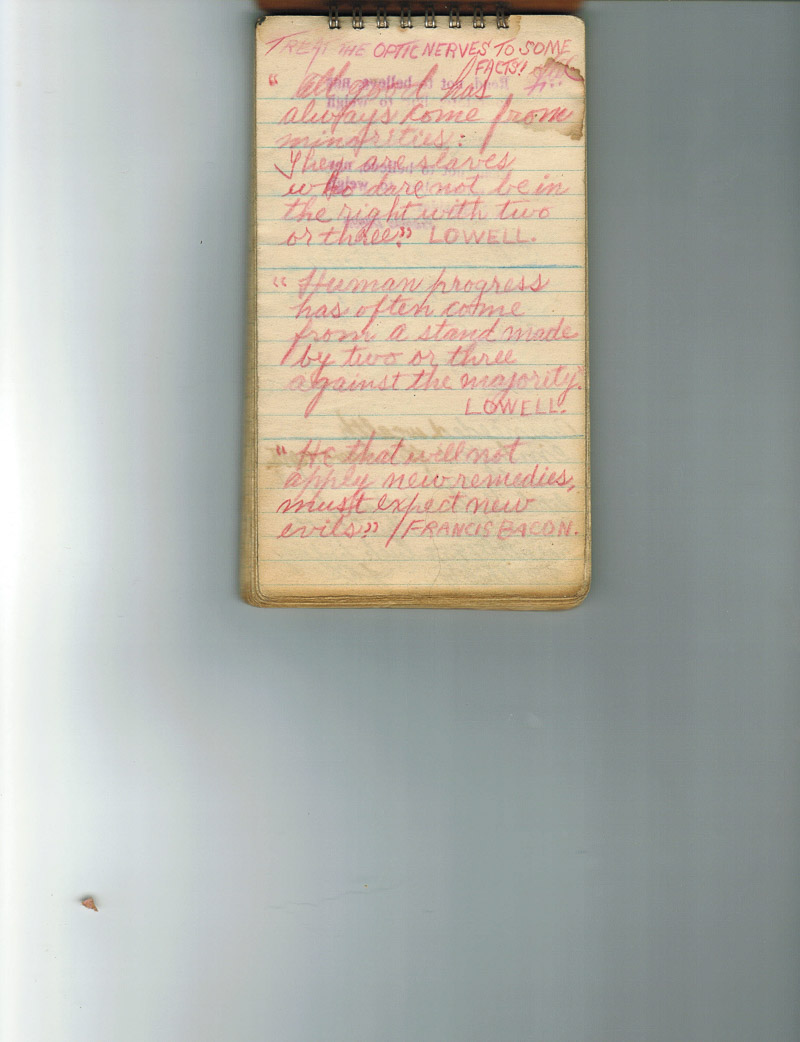 TREAT THE OPTIC NERVES TO SOME
FACTS!
"All good has
always come from
minorities:
They are slaves
who dare not be in
the right with two
or three." LOWELL.
"Human progress
has often come
from a stand made
by two or three
against the majority.
LOWELL.
"He that will not
apply new remedies,
must expect new
evils." FRANCIS BACON.